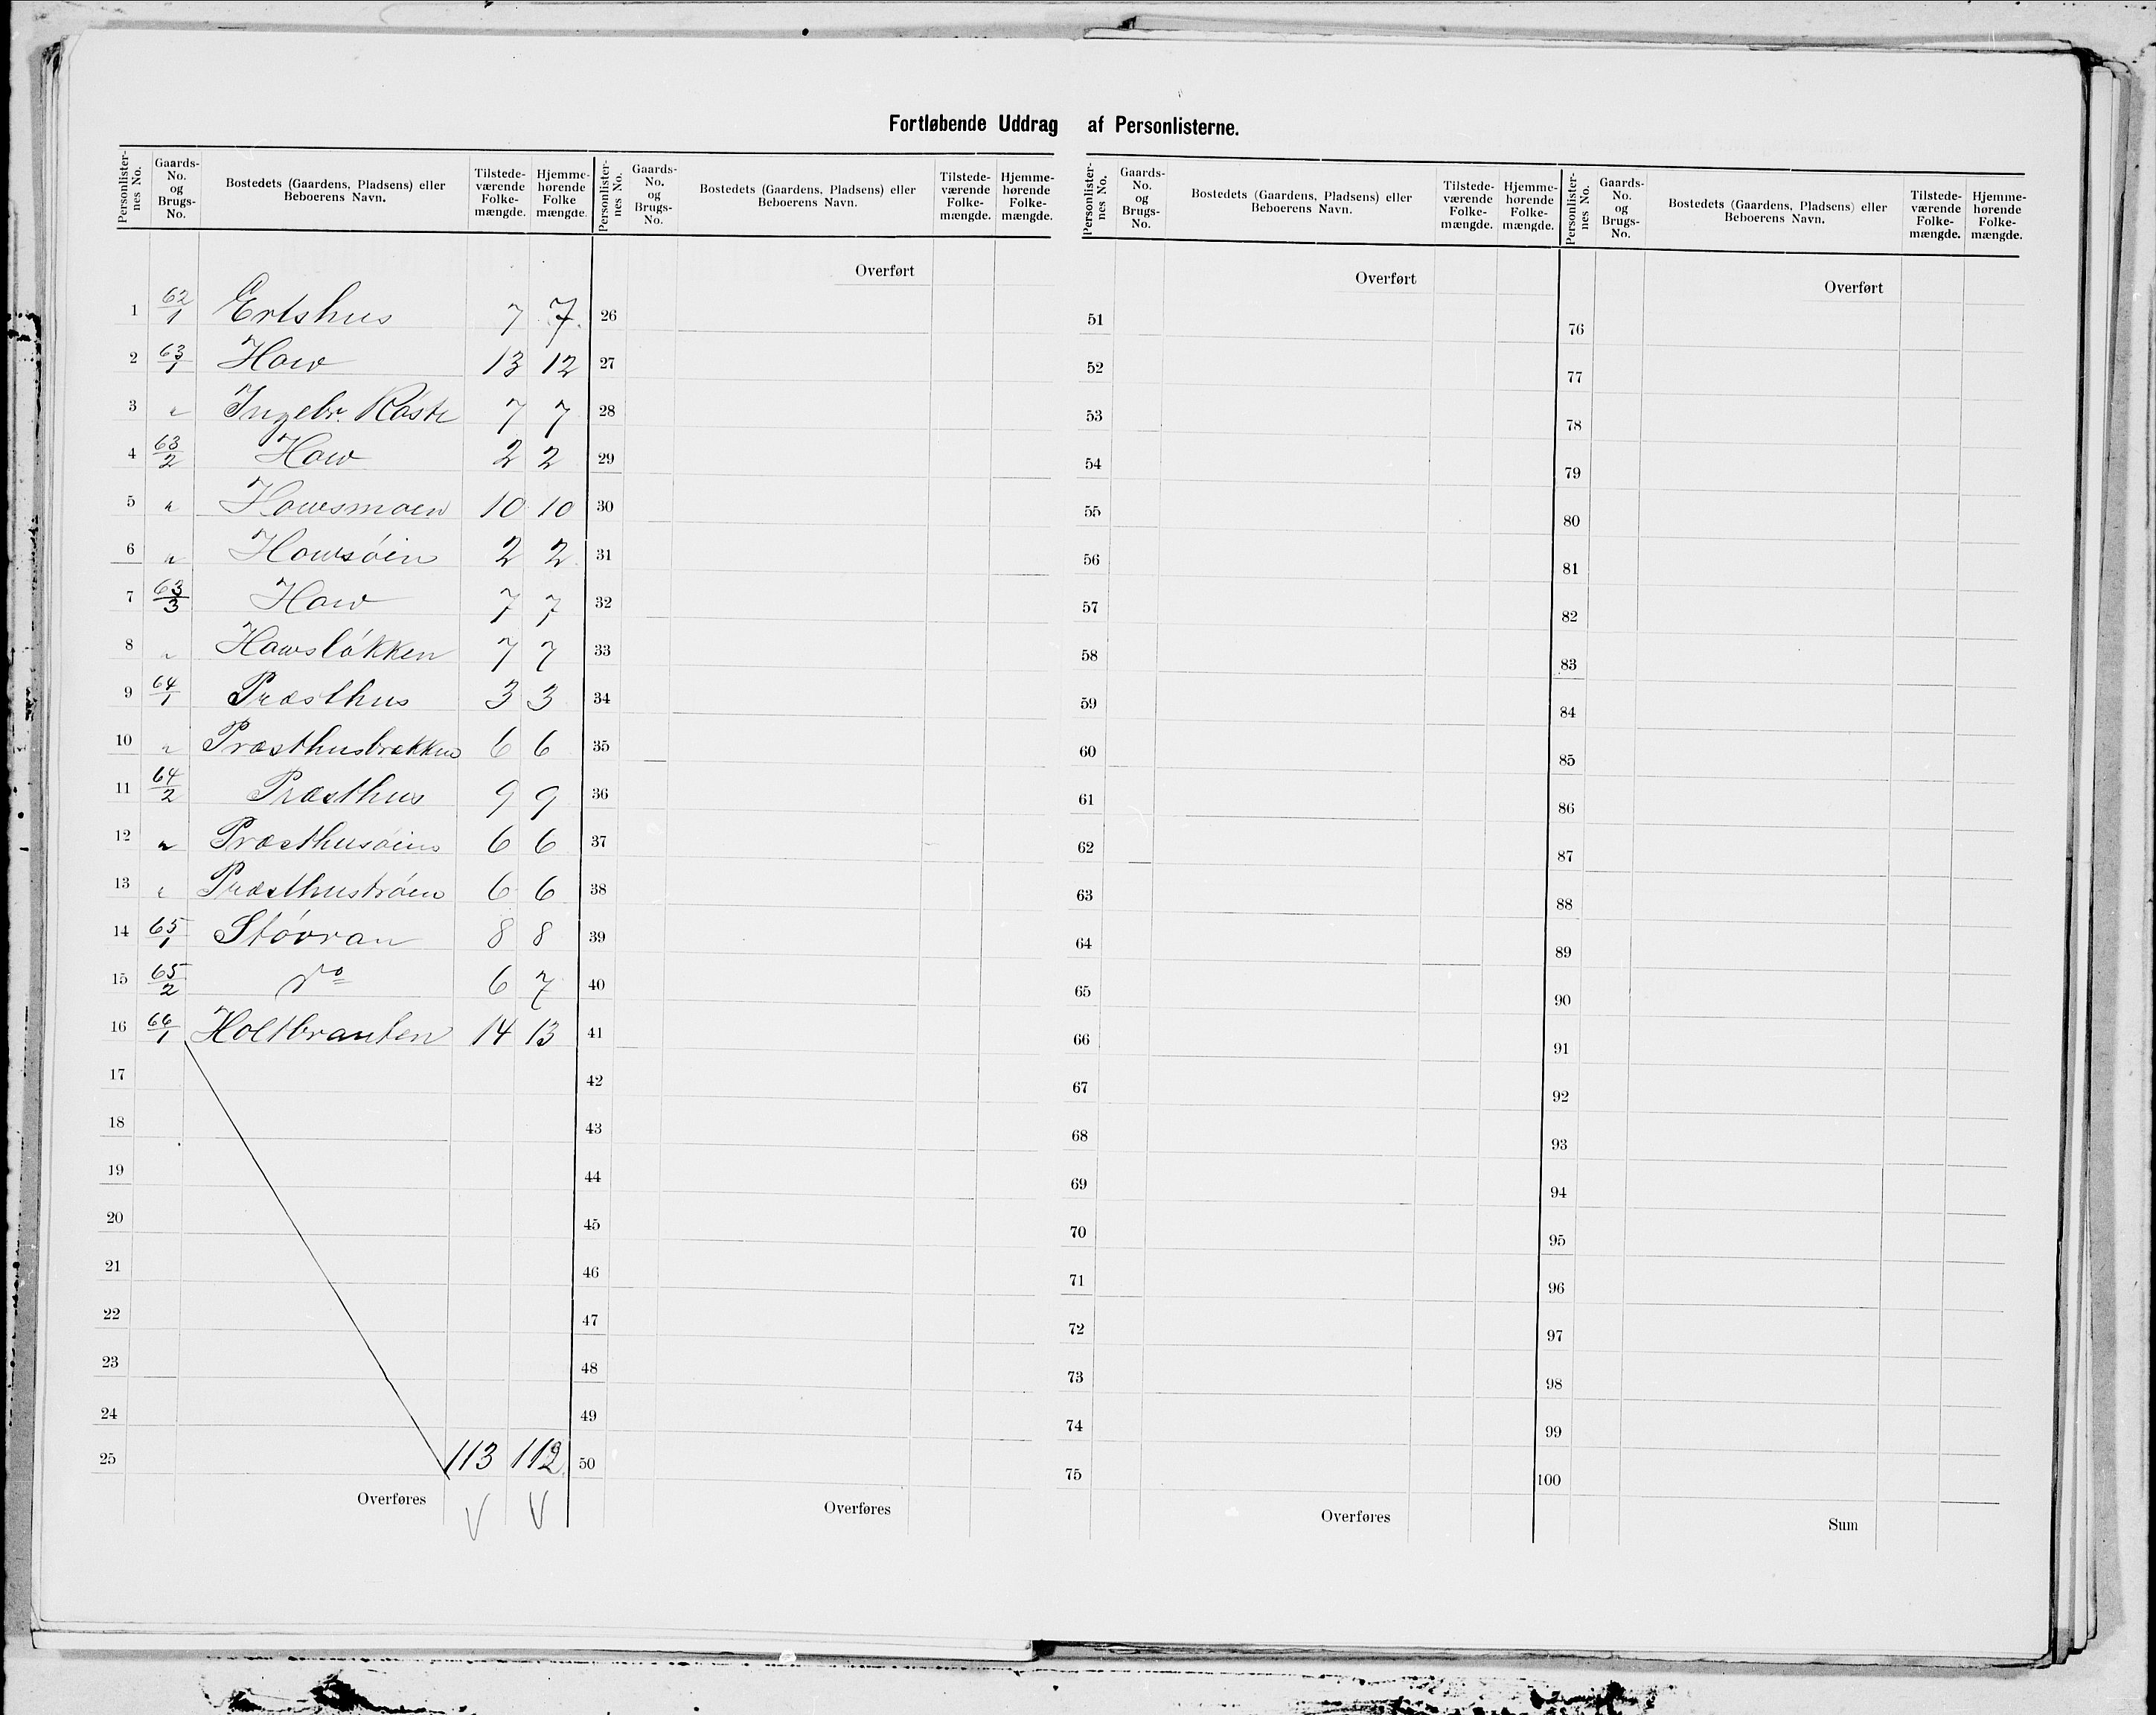 Fortløbende Uddrag af Personlisterne.
Personlister-nes No. | Gaards-No. og Brugs-No. | Bostedets (Gaardens, Pladsens) eller Beboerens Navn. | Tilstede-værende Folke-mængde. | Hjemme-hørende Folke mængde.
Personlister-nes No. | Gaards-No. og Brugs-No. | Bostedets (Gaardens, Pladsens) eller Beboerens Navn. | Tilstede-værende Folke-mængde. | Hjemme-hørende Folke-mængde.
Personlister-nes No. | Gaards-No. og Brugs-No. | Bostedets (Gaardens, Pladsens) eller Beboerens Navn. | Tilstede-værende Folke-mængde. | Hjemme-hørende Folke-mængde.
Personlister-nes No. | Gaards-No. og Brugs-No. | Bostedets (Gaardens, Pladsens) eller Beboerens Navn. | Tilstede-værende Folke-mængde. | Hjemme-hørende Folke-mængde.
1 62/1 Ertshus 7 7
2 63/1 Hov 13 12
3 " Ingebr. Røste 7 7
4 63/2 Hov 2 2
5 " Hovsmoen 10 10
6 " Hovsøien 2 2
7 63/3 Hov 7 7
8 " Hovsløkken 7 7
9 64/1 Præsthus 3 3
10 " Præsthusbakken 6 6
11 64/2 Præsthus 9 9
12 " Præsthusøien 6 6
13 " Præsthustrøen 6 6
14 65/1 Støvran 8 8
15 65/2 do 6 7
16 66/1 Holtbrauten 14 13
17
18
19
20
21
22
23
24
25 113 112
Overføres V V
Overført
26
27
28
29
30
31
32
33
34
35
36
37
38
39
40
41
42
43
44
45
46
47
48
49
50
Overføres
Overført
51
52
53
54
55
56
57
58
59
60
61
62
63
64
65
66
67
68
69
70
71
72
73
74
75
Overføres
Overført
76
77
78
79
80
81
82
83
84
85
86
87
88
89
90
91
92
93
94
95
96
97
98
99
100
Sum